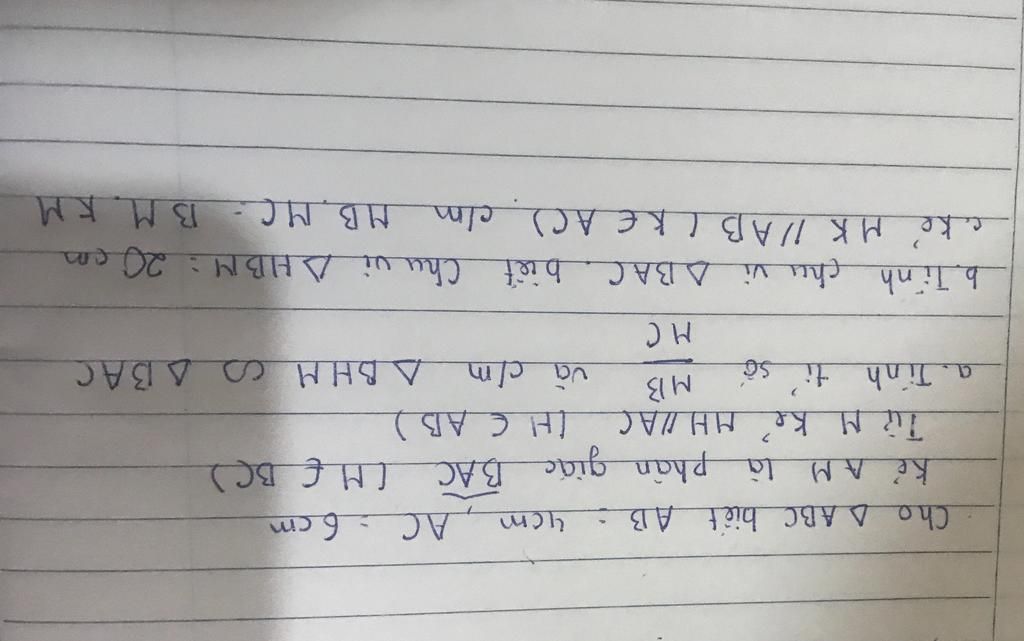 Cho ΔABC biết AB = 4cm, AC = 6cm
Kẻ AM là phân giác BAC (M ∈ BC)
Từ M kẻ MH//AC (H ∈ AB)
a. Tính tỉ số MB/MC và c/m ΔBHM ∽ ΔBAC
b. Tính chu vi ΔBAC. biết chu vi ΔHBM = 20cm
c. Kẻ MK//AB (K ∈ AC) c/m MB.MC = BM.KM